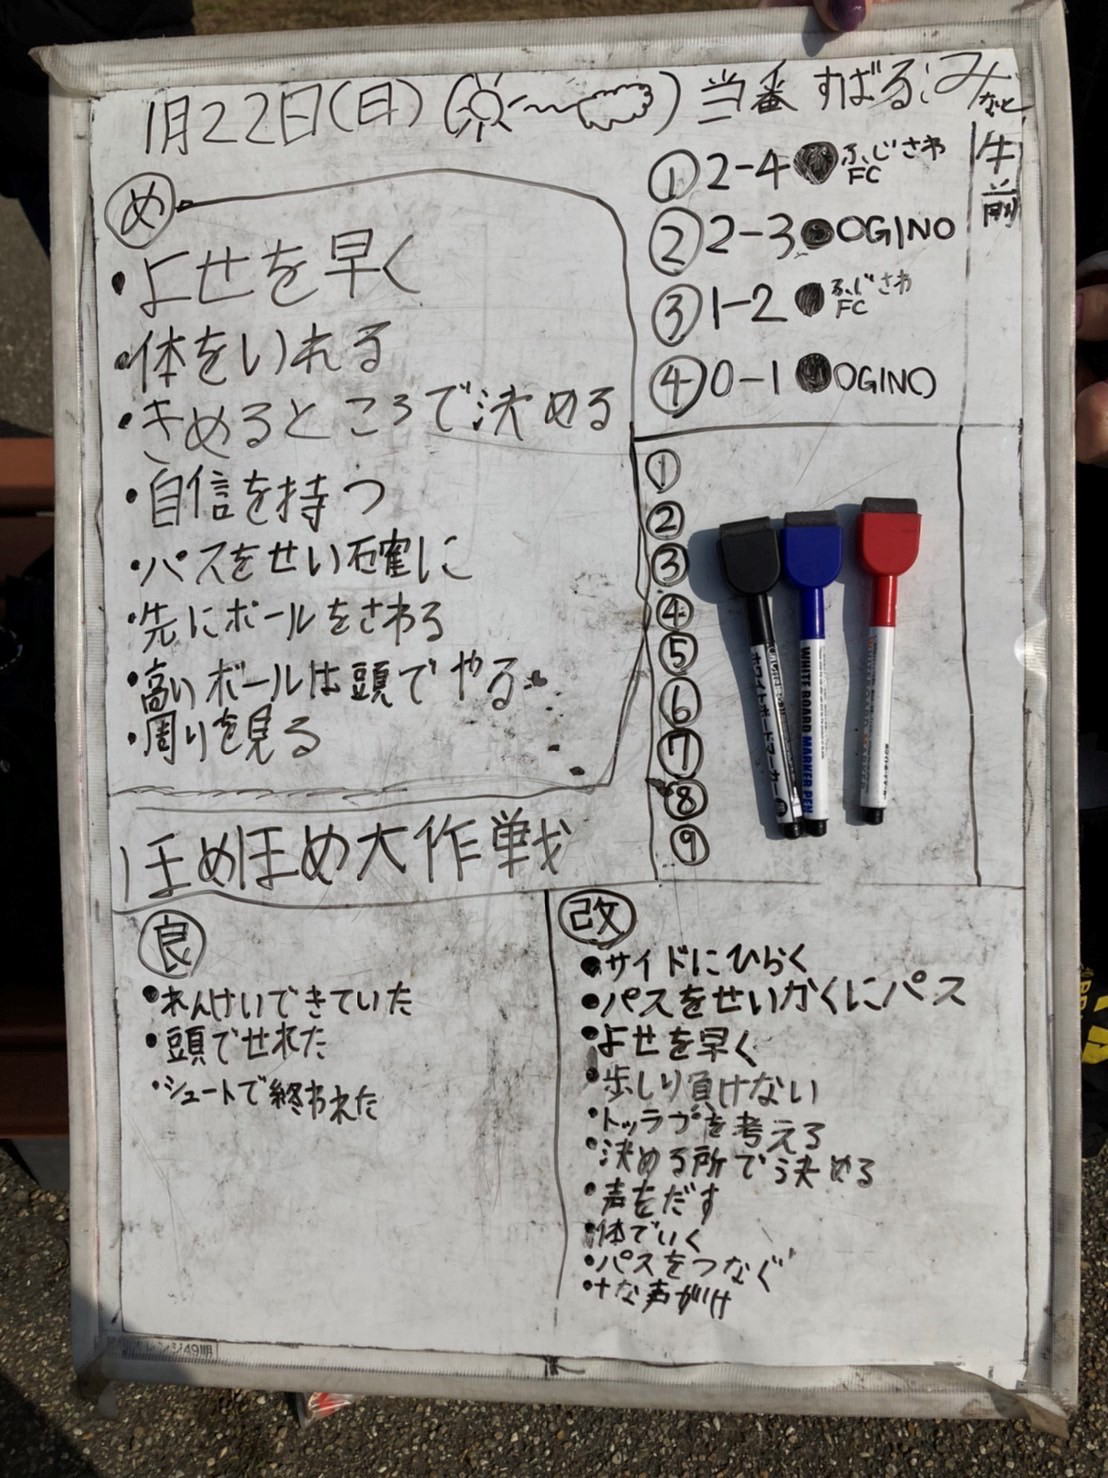 1月22日(日)( ~ )当番 すばる:みなと
午前
① 2-4 ● ふじさわFC
② 2-3 ● OGINO
③ 1-2 ● ふじさわFC
④ 0-1 ● OGINO
め
・よせを早く
・体をいれる
・きめるところで決める
・自信を持つ
・パスをせい確に
・先にボールをさわる
・高いボールは頭でやる
・周りを見る
①
②
③
④
⑤
⑥
⑦
⑧
⑨
ホワイトボードマーカー
WHITE BOARD MARKER PEN
ほめほめ大作戦
良
・れんけいできていた
・頭でせれた
・シュートで終われた
改
・サイドにひらく
・パスをせいかくにパス
・よせを早く
・歩しり負けない
・トッラプを考える
・決める所で決める
・声をだす
・体でいく
・パスをつなぐ
・+な声がけ
レンジ49期